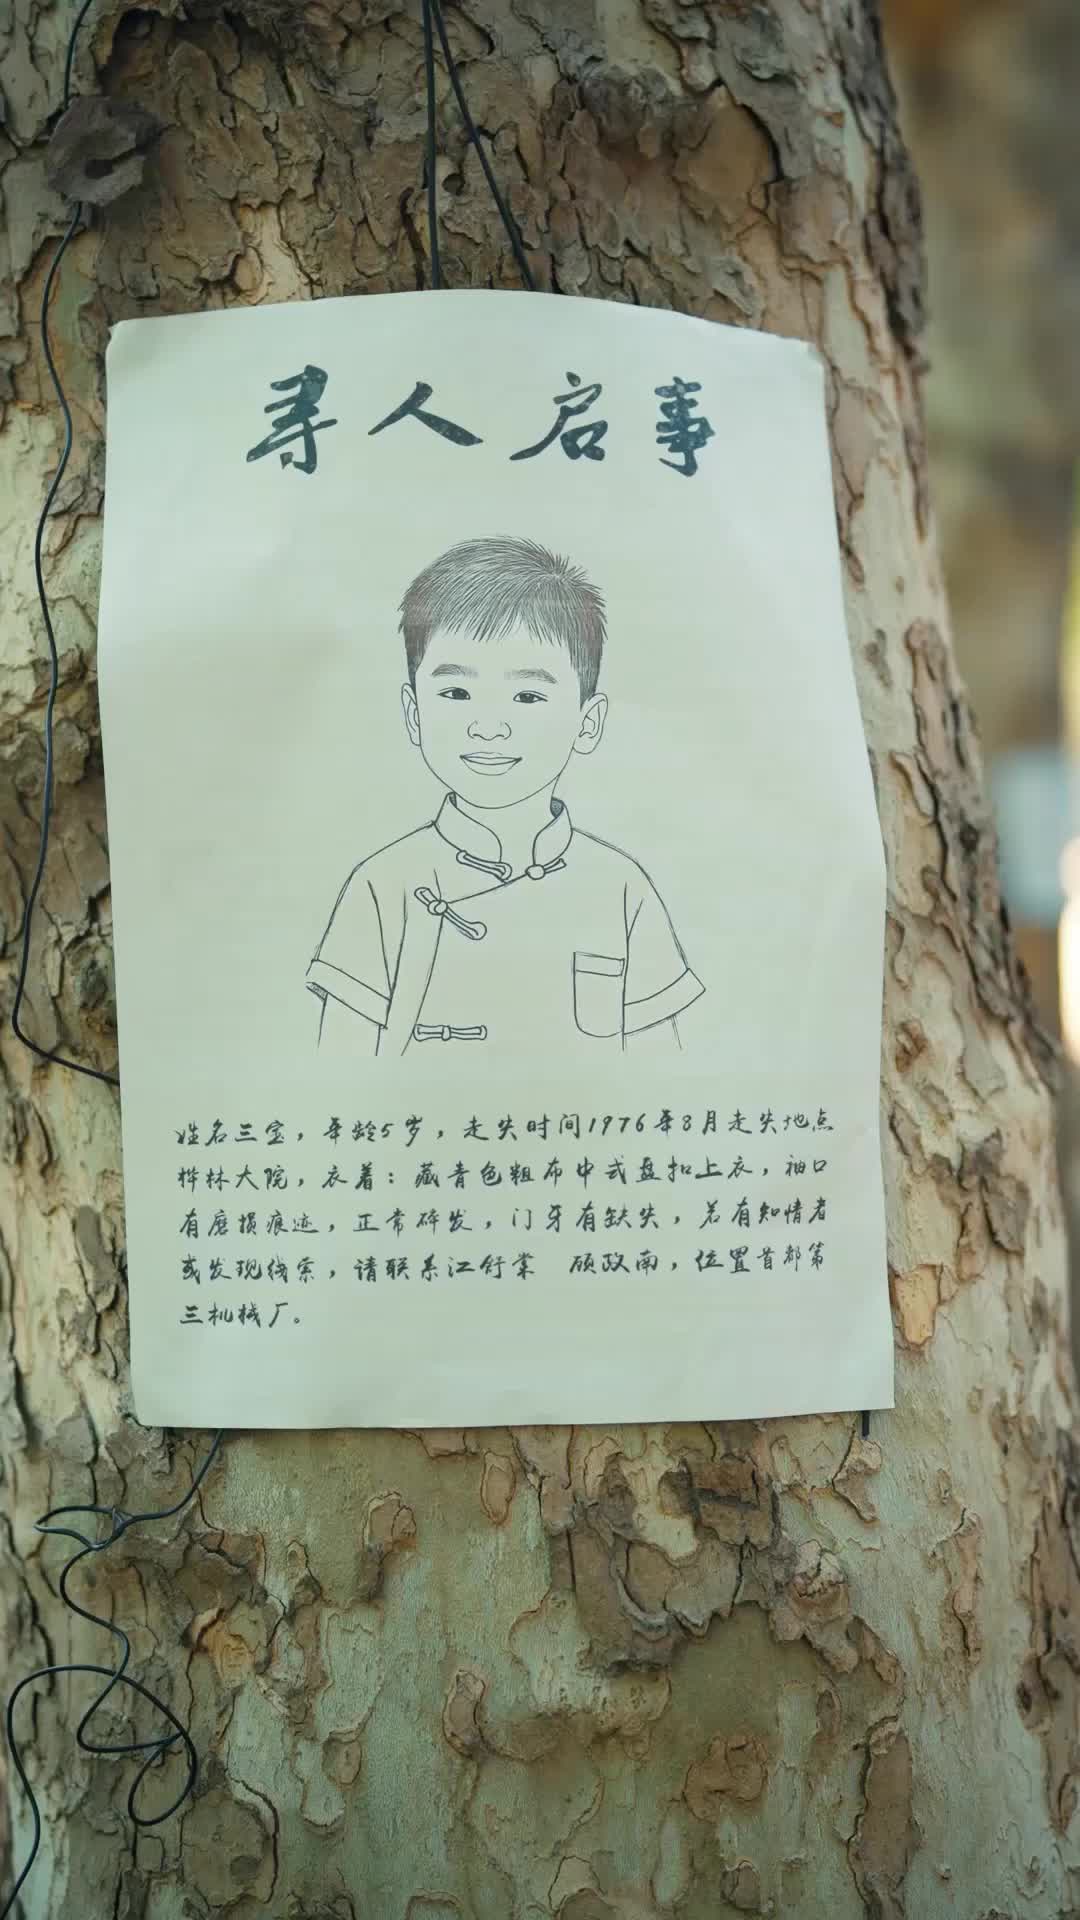 寻人启事
姓名三宝，年龄5岁，走失时间1976年8月走失地点
桦林大院，衣着：藏青色粗布中式盘扣上衣，袖口
有磨损痕迹，正常碎发，门牙有缺失，若有知情者
或发现线索，请联系江舒棠 顾政南，位置首都第
三机械厂。